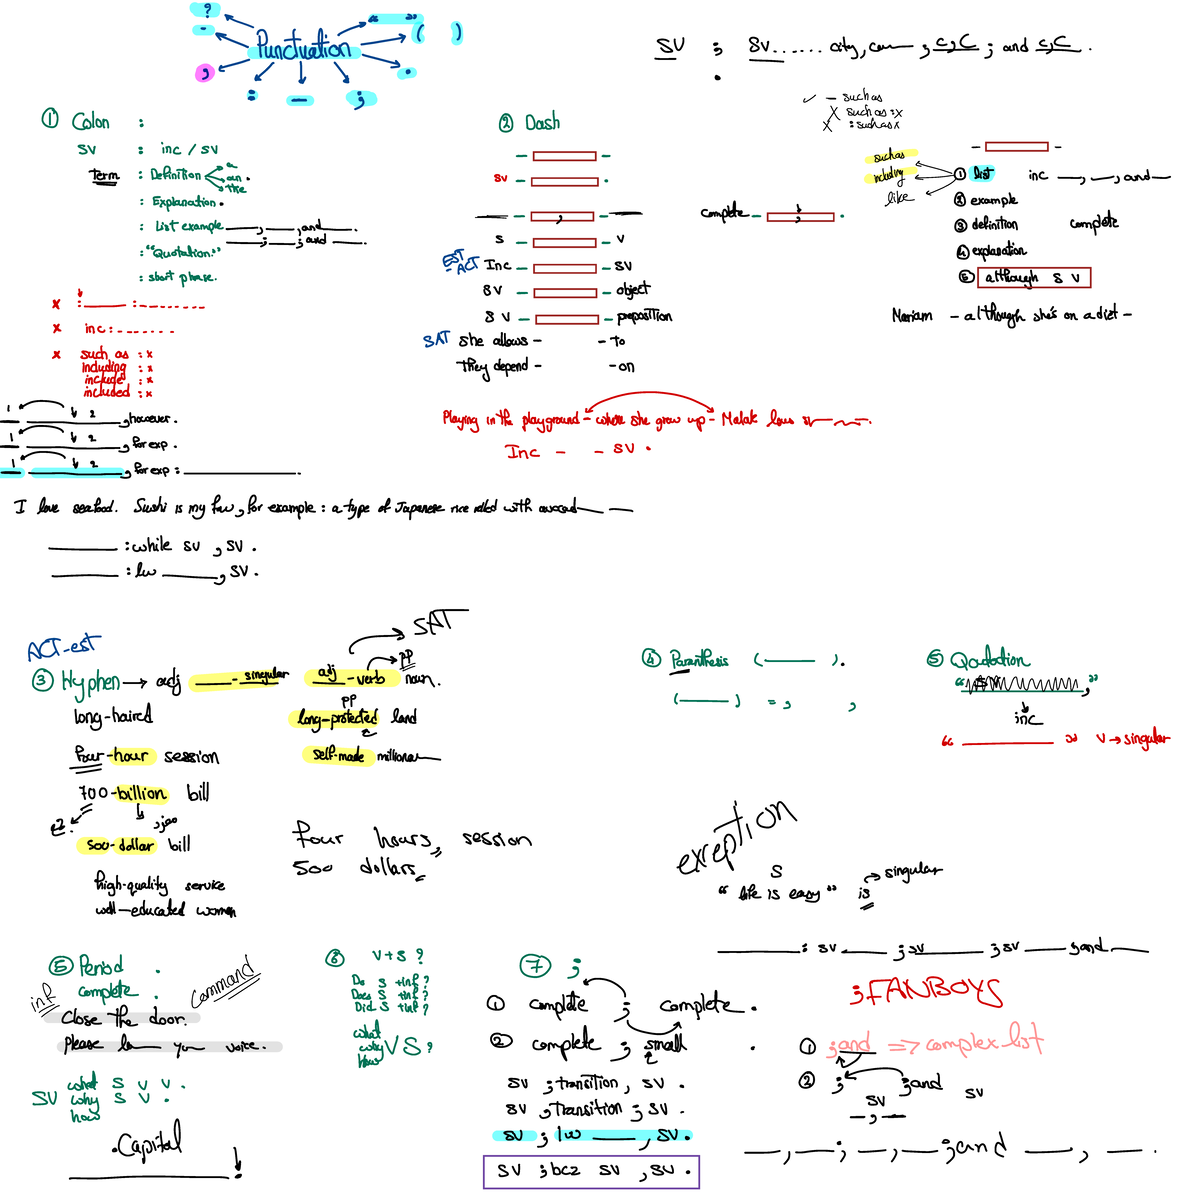 ?
“ ”
-
Punctuation
( )
,
.
:
—
;
SV ; SV...... city, c,C ; and c,C .
.
✓ — such as
X such as : x
X : such as x
① Colon :
SV : inc / SV
Term : Definition a
an
the
: Explanation .
: List example ___, ___, and ___.
___; ___; and ___.
: “Quotation.”
: short phase.
x : ___ : - - - - - -
x inc : - - - - - - -
x such as : x
including : x
include : x
included : x
1 2 , however .
1 2 , for exp .
1 2 , for exp : ___.
② Dash
— —
SV — .
— , —
S — — V
EST
-ACT Inc — — SV
SV — — object
SV — — preposition
SAT She allows — — to
They depend — — on
complete — ; .
— —
such as
including
like
① list inc ___, __, and __
② example
③ definition complete
④ explanation
⑤ although S V
Mariam — although she's on a diet —
Playing in the playground — where she grow up — Malak
Inc — — SV .
I love seafood. Sushi is my fav, for example : a type of Japanese rice rolled with
___ : while SV , SV .
___ : ___, SV .
ACT-est
SAT
③ Hyphen → adj ___ - singular
adj - verb noun.
PP
long-haired
PP
long-protected land
four-hour session
self-made
700-billion bill
500-dollar bill
high-quality service
well-educated women
four hours, session
500 dollars,
④ Paranthesis (___).
(___) = , ,
⑤ Qoutation
“ SV ,”
inc
“ ___ ” V → singular
exception
S
“life is easy” is → singular
___: SV ___ ; SV ___ ; SV ___ ; and ___
⑤ Period .
complete .
inf
Command
Close the door.
Please your voice.
what S V V .
SV why S V .
how
. Capital
___.
⑥ V + S ?
Do S + inf ?
Does S + inf ?
Did S + inf ?
what
why V S ?
how
⑦ ;
① complete ; complete .
② complete ; small .
SV ; transition , SV .
SV , Transition ; SV .
SV ; ___, SV .
SV ; bcz SV , SV .
; FANBOYS
① ; and => complex list
② ; ; and
SV SV
— , —
—, —; —, — ; and —, — .